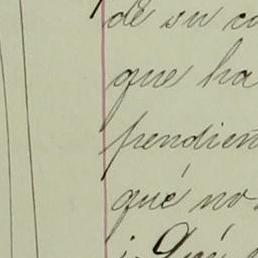 de su co
que ha
prendien
qué no
¿Qué